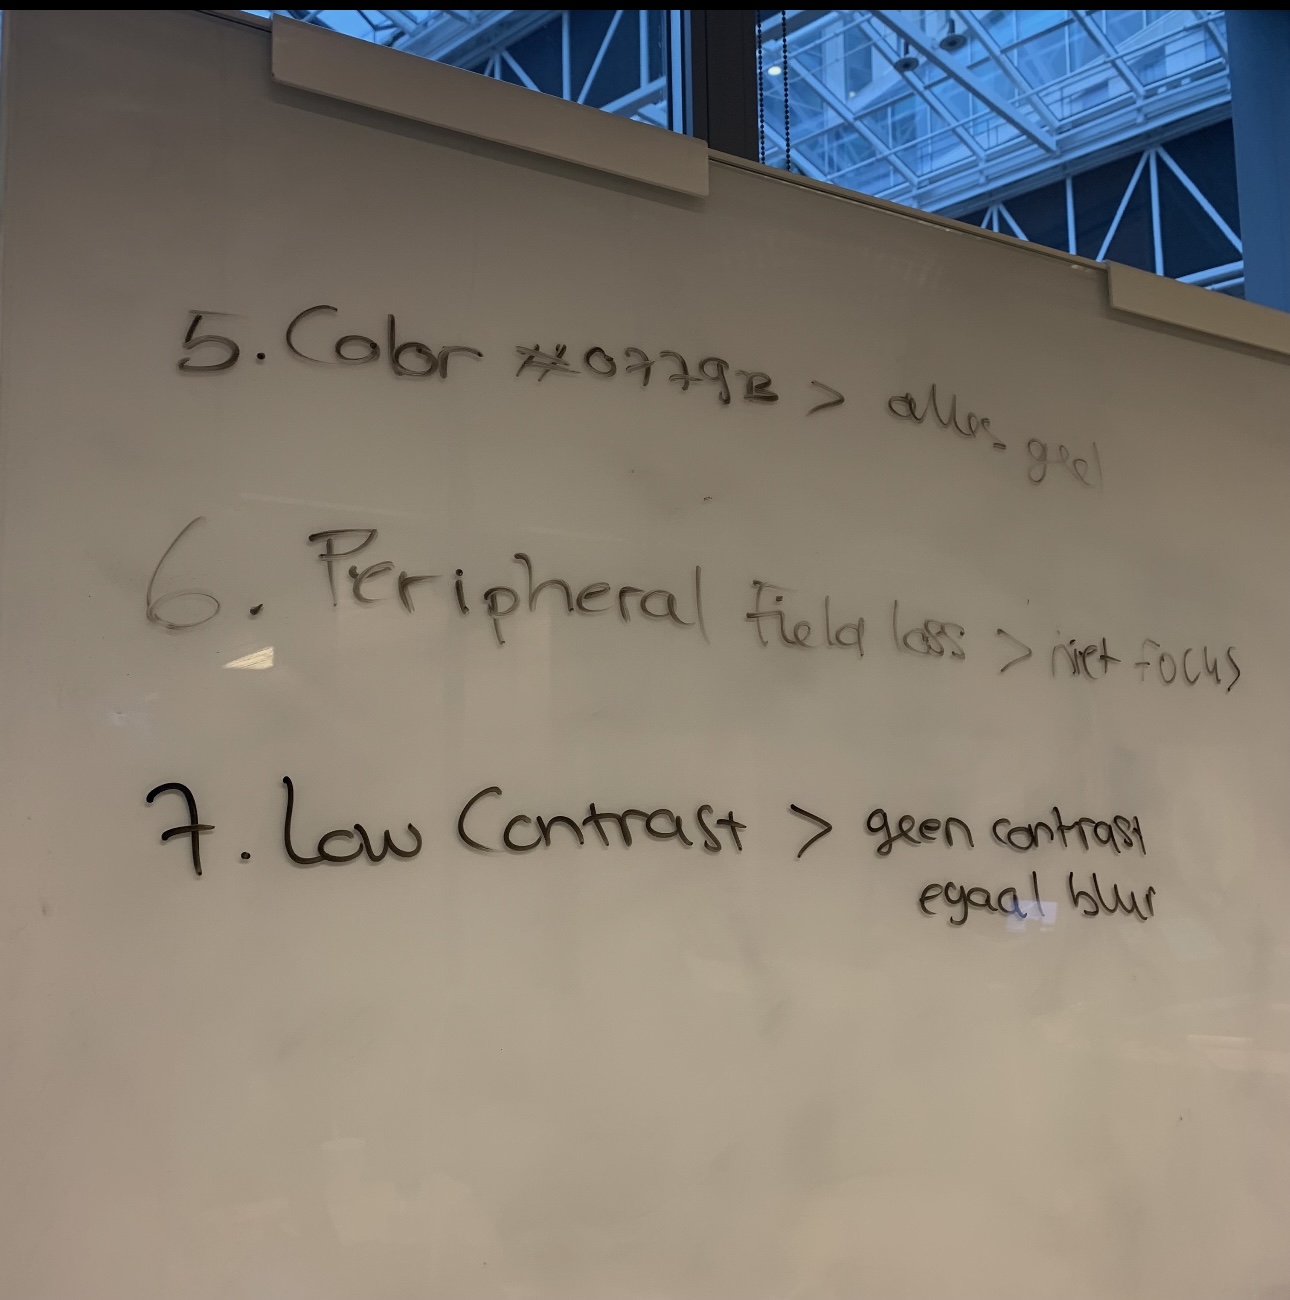 5. Color #0779B > alles geel
6. Peripheral field loss > niet focus
7. Low Contrast > geen contrast
egaal blur